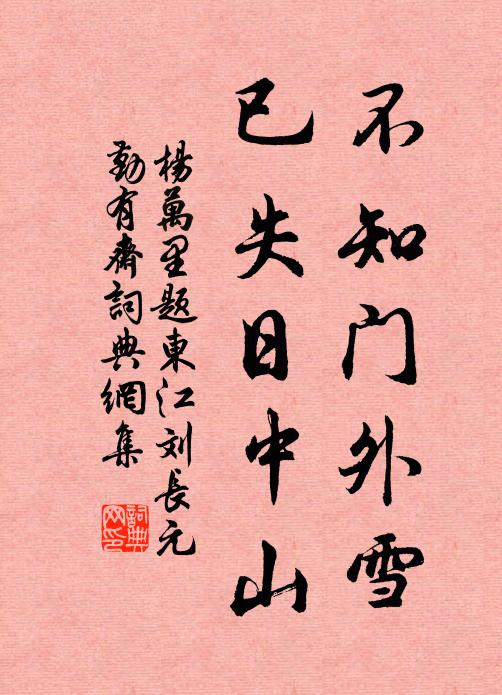 不知门外雪
已失日中山
楊萬里题東江刘長元
勤有齋詞典網集
詞典
网印